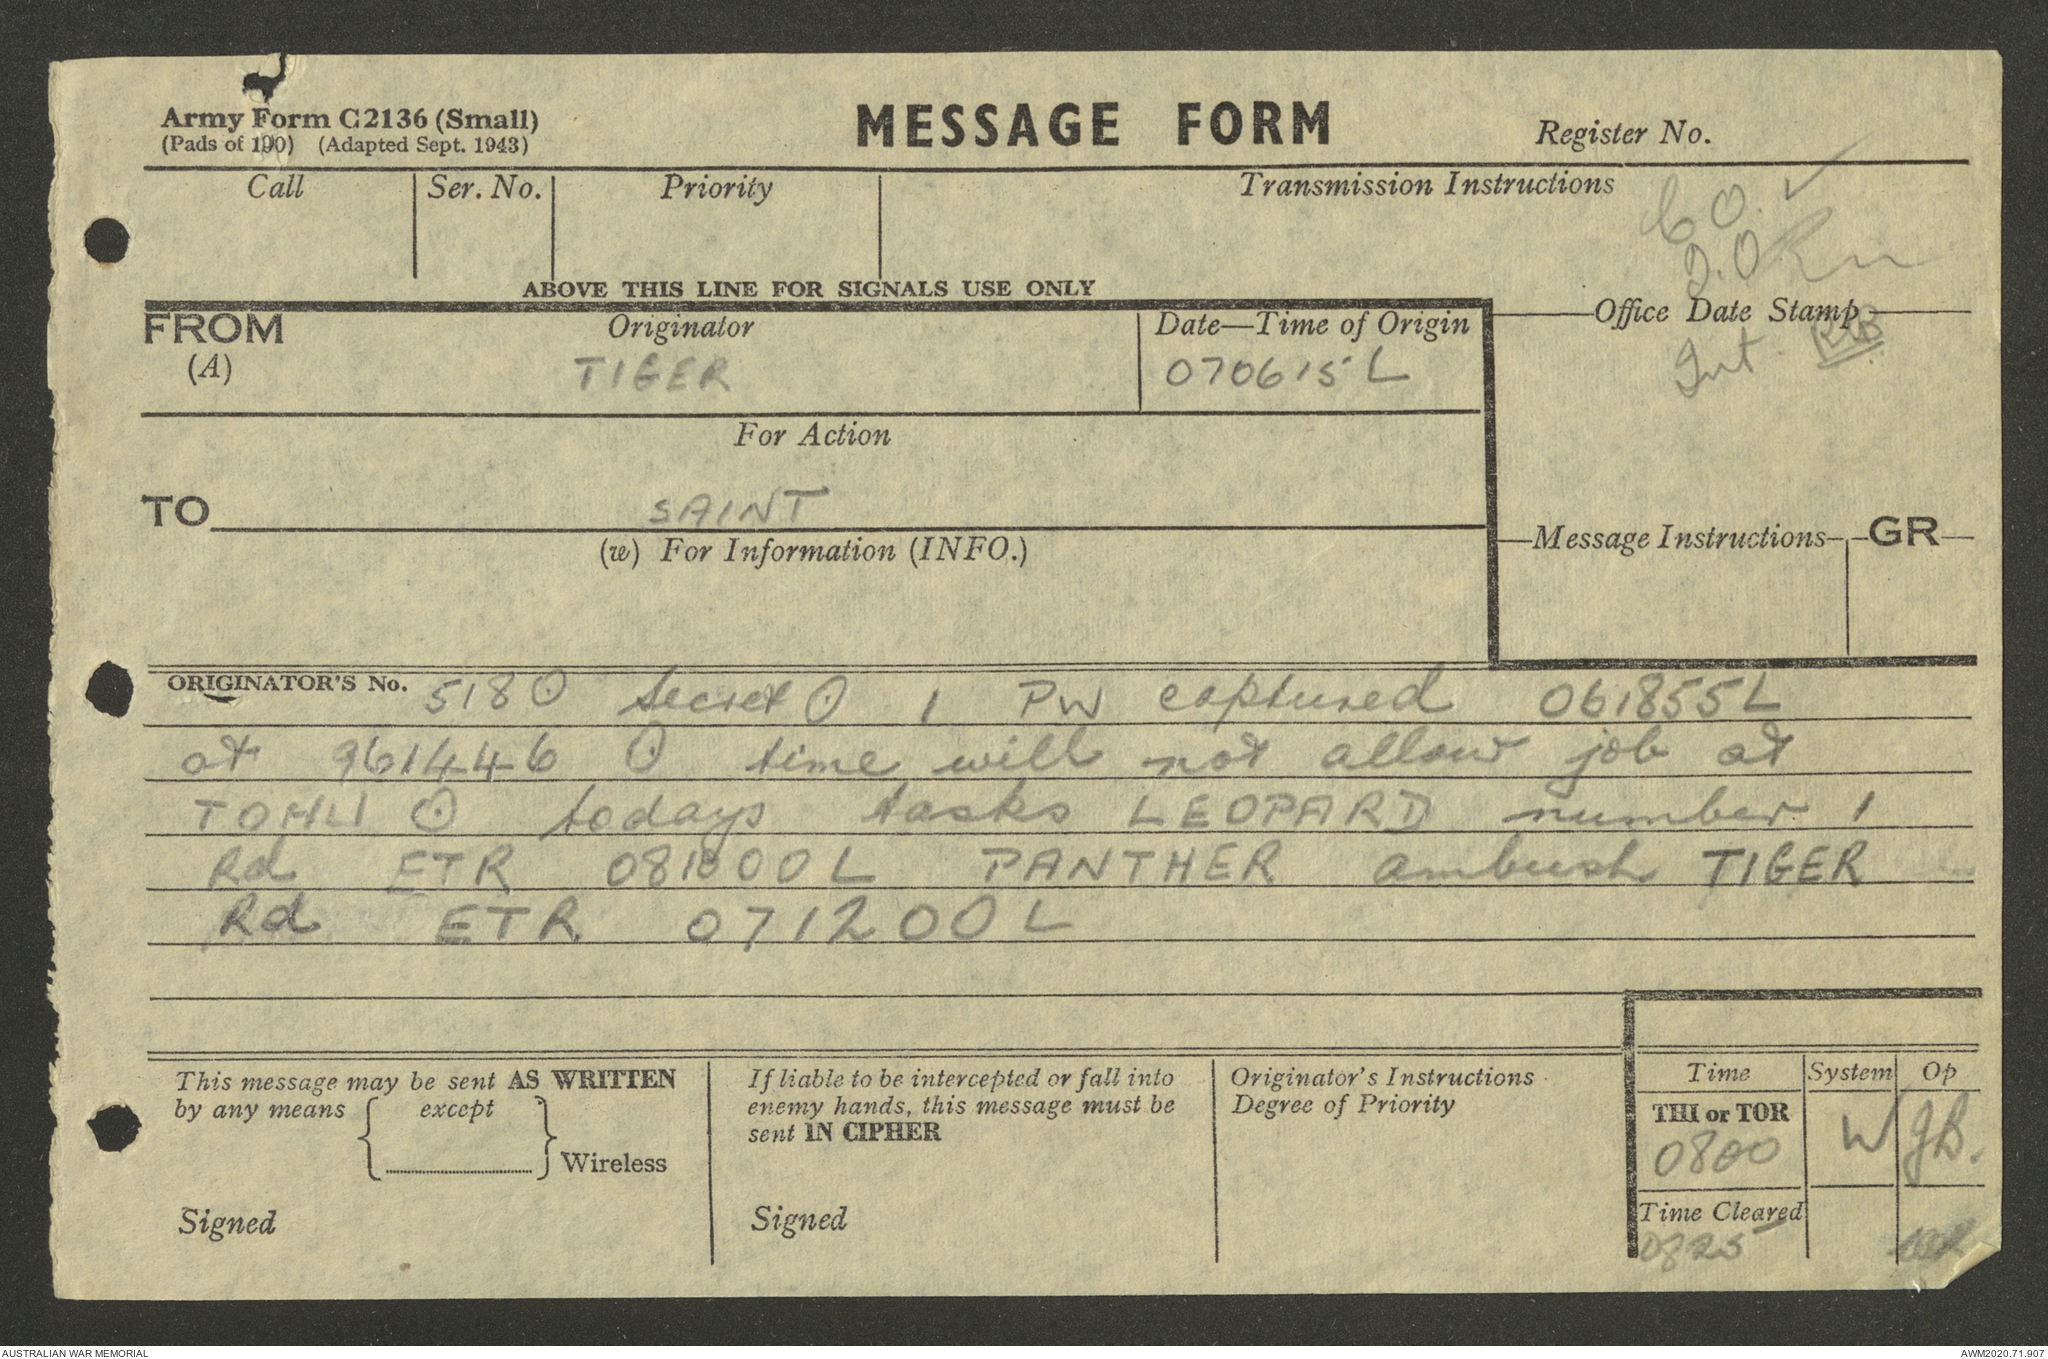 Army Form C2136 (Small)
(Pads of 100) (Adapted Sept. 1943)
MESSAGE FORM
Register No.
Call
Ser. No.
Priority
Transmission Instructions
CO. ✓
I.O.
ABOVE THIS LINE FOR SIGNALS USE ONLY
Office Date Stamp
Int.
FROM
(A)
Originator
TIGER
Date—Time of Origin
070615 L
For Action
TO
SAINT
(w) For Information (INFO.)
Message Instructions
GR
ORIGINATOR'S No. 518 ⊙ secret ⊙ 1 PW captured 061855L
at 961446 ⊙ time will not allow job at
TOHU ⊙ todays tasks LEOPARD number 1
Rd ETR 081000L PANTHER ambush TIGER
Rd ETR 071200L
This message may be sent AS WRITTEN
by any means { except } Wireless
Signed
If liable to be intercepted or fall into
enemy hands, this message must be
sent IN CIPHER
Signed
Originator's Instructions
Degree of Priority
Time
System
Op
THI or TOR
0800
W
JB.
Time Cleared
0825
AUSTRALIAN WAR MEMORIAL
AWM2020.71.907